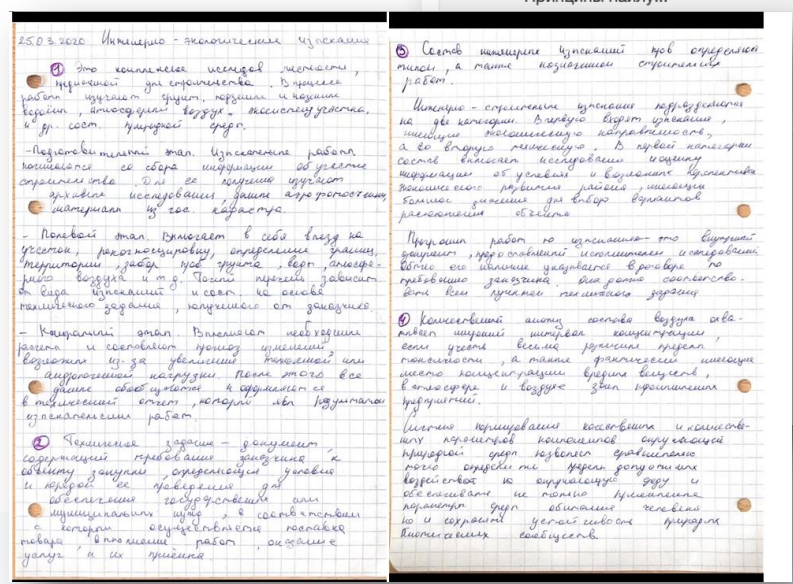 25.03.2020 Инженерно-экологические изыскания
① Это комплексное исследов местности,
предназначенной для строительства. В процессе
работ изучают грунт, подземные и наземн
водоёмы, атмосферный воздух, экосистему участка,
и др. сост. природной среды.
-Подготовительный этап. Изыскательные работы
начинаются со сбора информации об участке
строительства. Для её получения изучают
архивные исследования, данные аэрофотосъёмки
материалы из гос. кадастра.
- Полевой этап. Включает в себя выезд на
участок, рекогносцировку, определение границ
территории, забор проб грунта, воды, атмосфер-
ного воздуха и т.д. Точный перечень зависит
от вида изысканий и сост на основе
технического задания, полученного от заказчика.
- Камеральный этап. Выполняют необходимые
расчёты и составляют прогноз изменений,
возможных из-за увеличения техногенной или
антропогенной нагрузки. После этого все
данные обобщаются и оформляются
в технический отчёт, который явл результатом
изыскательских работ.
② Техническое задание - документ,
содержащий требования заказчика к
объекту закупки, определяющий условия
и порядок её проведения для
обеспечения государственных или
муниципальных нужд, в соответствии
с которым осуществляется поставка
товара, выполнение работ, оказание
услуг и их приёмка.
③ Состав инженерных изысканий
а также назначением строительных
работ.
Инженерно-строительные изыскания подразделяются
на две категории. В первую входят изыскания,
имеющие экономическую направленность,
а во вторую техническую. В первой категории
состав включает исследования и оценку
информации об условиях и возможных перспективах
экономического развития района, имеющих
большое значение для выбора вариантов
расположения объекта
Программа работ по изысканию - это внутренний
документ, предоставленный исполнителем исследований
Обычно его наличие указывается в договоре по
требованию заказчика. Она должна соответство-
вать всем пунктам технического задания
④ Количественный анализ состава воздуха охва-
тывает широкий интервал концентраций,
если учесть весьма различные пределы
токсичности, а также фактически имеющие
место концентрации вредных веществ,
в атмосфере и воздухе зоны промышленных
предприятий.
Система нормирования качественных и количествен-
ных параметров компонентов окружающей
природной среды позволяет сравнительно
точно определить пределы допустимых
воздействий на окружающую среду и
обеспечивать не только приемлемые
параметры среды обитания человека
но и сохранить устойчивость природных
биотических сообществ.